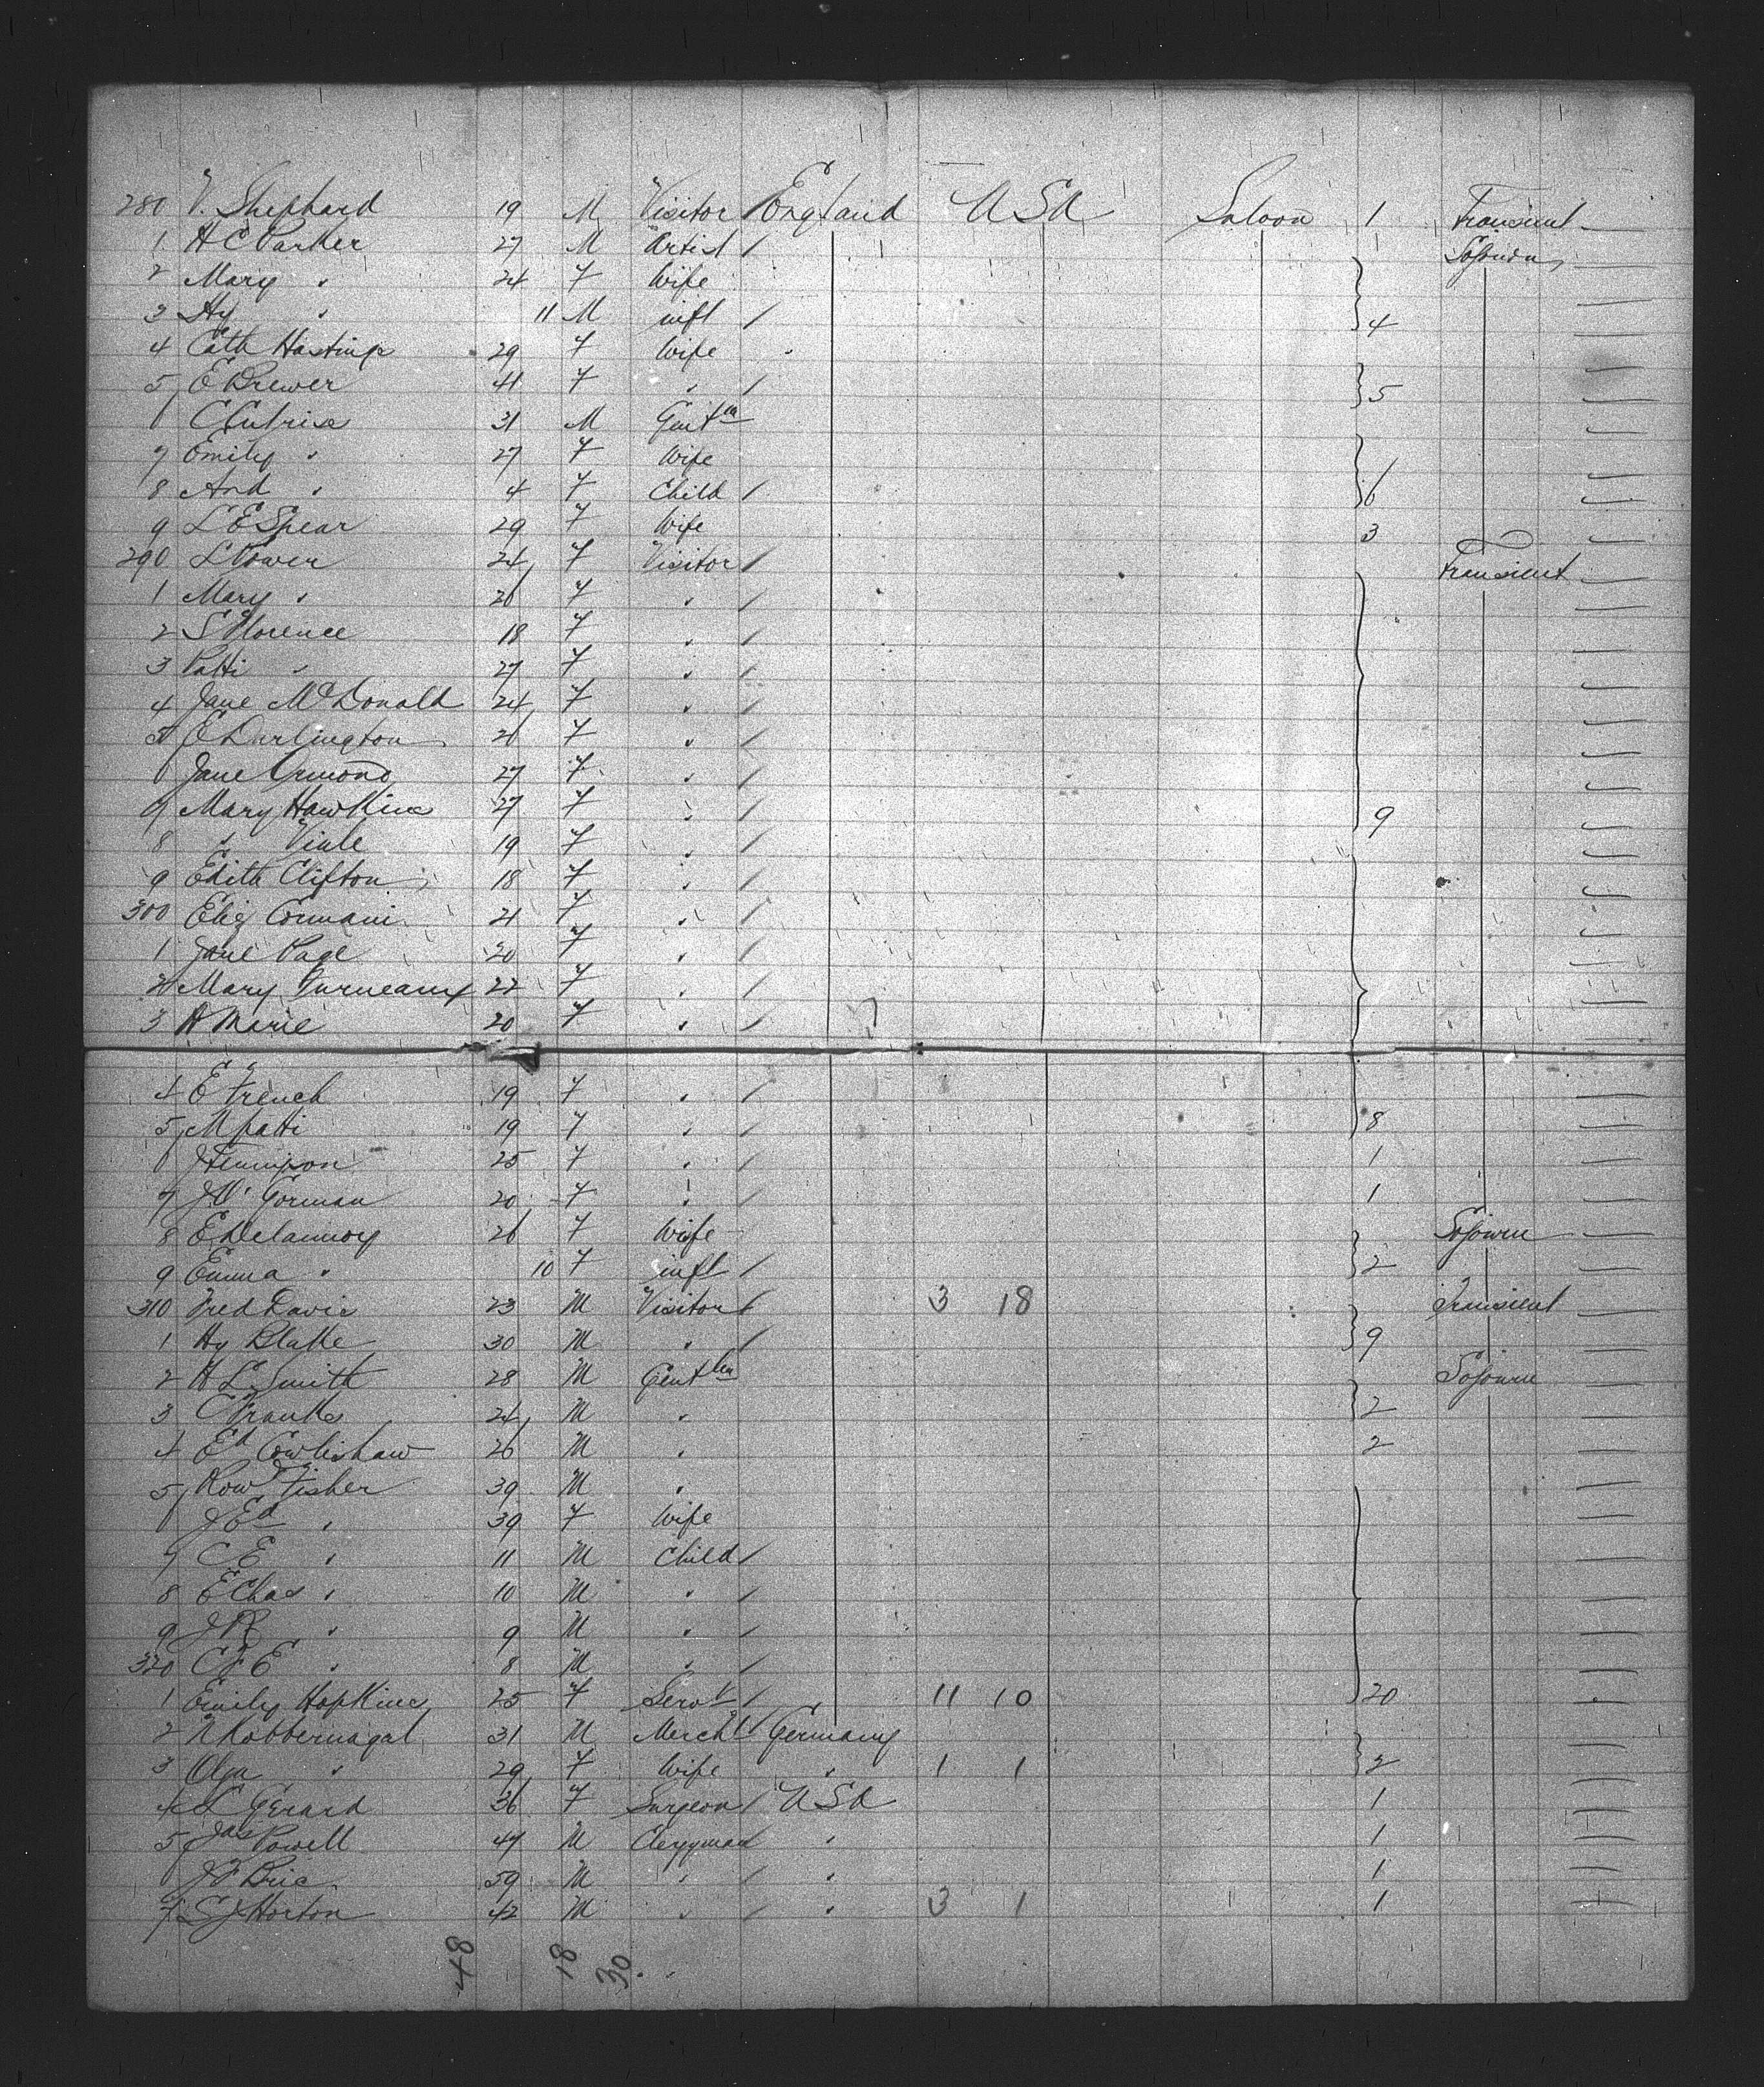 280 V. Shephard 19 M Visitor / England USA Saloon 1 Transient
1 H C Parker 27 M Artist / Sojourn
2 Mary " 24 F Wife
3 Hy " 11 M inft / 4
4 Cath Hastings 29 F Wife
5 E Brewer 41 F " / 5
6 C 31 M Gentn
7 Emily " 27 F Wife
8 And " 4 F Child / 6
9 L E Spear 29 F Wife 3
290 L Power 24 F Visitor / Transient
1 Mary " 26 F " /
2 S Florence 18 F " /
3 Patti " 27 F " /
4 Jane McDonald 24 F " /
5 E Darlington 26 F " /
6 Jane Ormond 27 F " /
7 Mary Hawkins 27 F " / 9
8 " Viale 19 F " /
9 Edith Clifton 18 F " /
300 Eliz Cormani 21 F " /
1 Jane Page 20 F " /
2 Mary Furneaux 22 F " /
3 A Marie 20 F " /
4 E French 19 F " /
5 M Patti 19 F " / 8
6 J Tennison 25 F " / 1
7 J O'Gorman 20 F " / 1
8 E Delannoy 26 F Wife Sojourn
9 Emma " 10 F inft / 2
310 Fred Davis 23 M Visitor / 3 18 Transient
1 Hy Blake 30 M " / 9
2 H L Smith 28 M Gentlen Sojourn
3 C Franks 24 M " 2
4 Ed Cowlishaw 26 M " 2
5 Row Fisher 39 M "
6 J Ed " 39 F Wife
7 C E " 11 M Child /
8 E Chas " 10 M " /
9 J R " 9 M " /
320 C F E " 8 M " /
1 Emily Hopkins 25 F Servt / 11 10 20
2 N Kobbernagal 31 M Mercht / Germany
3 Olga " 29 F Wife " 1 1 2
4 L Gerard 36 F Surgeon / USA 1
5 Jas Powell 47 M Clergyman " 1
6 J F Bric 59 M " / " 1
7 S J Horton 42 M " / " 3 1 1
48 18 30